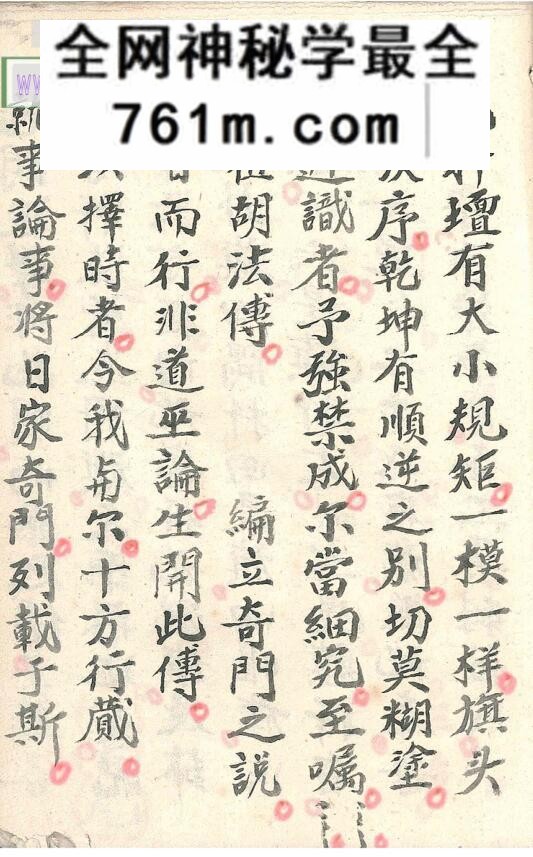 全网神秘学最全
761m.com
壇有大小規矩一模一样旗头
序乾坤有順逆之别切莫糊塗
識者予強禁成尔當細究至嘱
胡法傳 編立奇門之説
而行非道巫論生開此傳
擇時者今我与尔十方行藏
事論事將日家奇門列載于斯